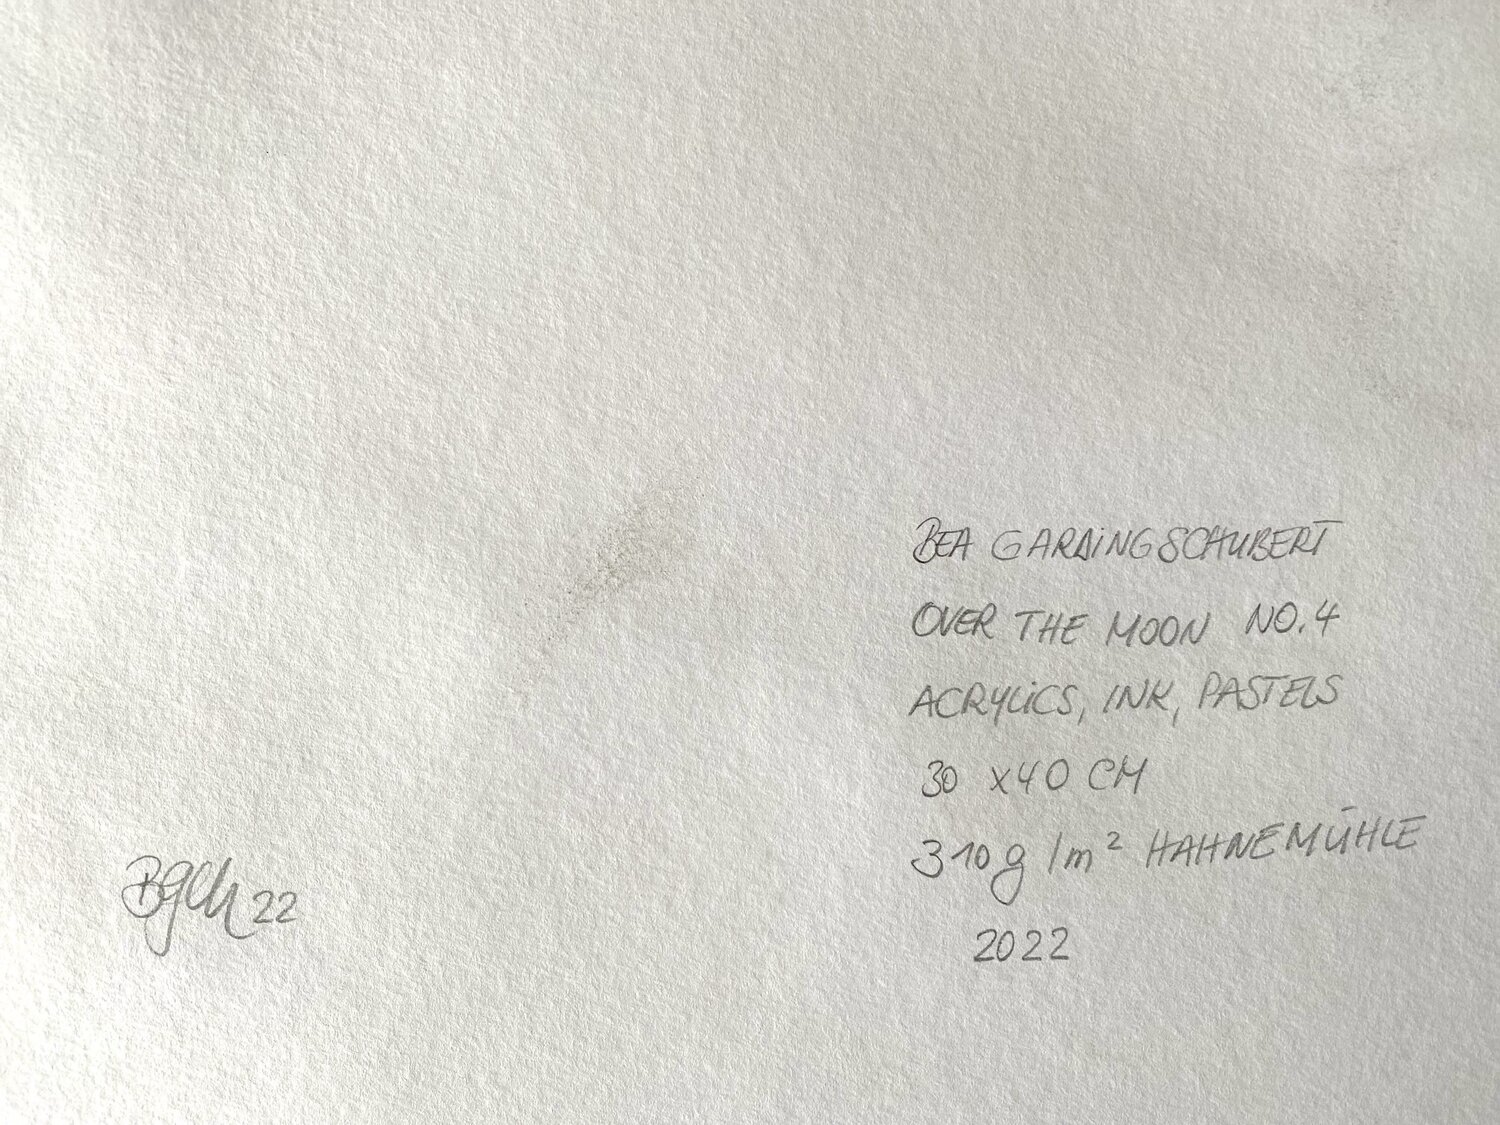 BEA GARDINGSCHUBERT
OVER THE MOON NO.4
ACRYLICS, INK, PASTELS
30 x 40 CM
310g/m² HAHNEMÜHLE
2022
Bgch 22